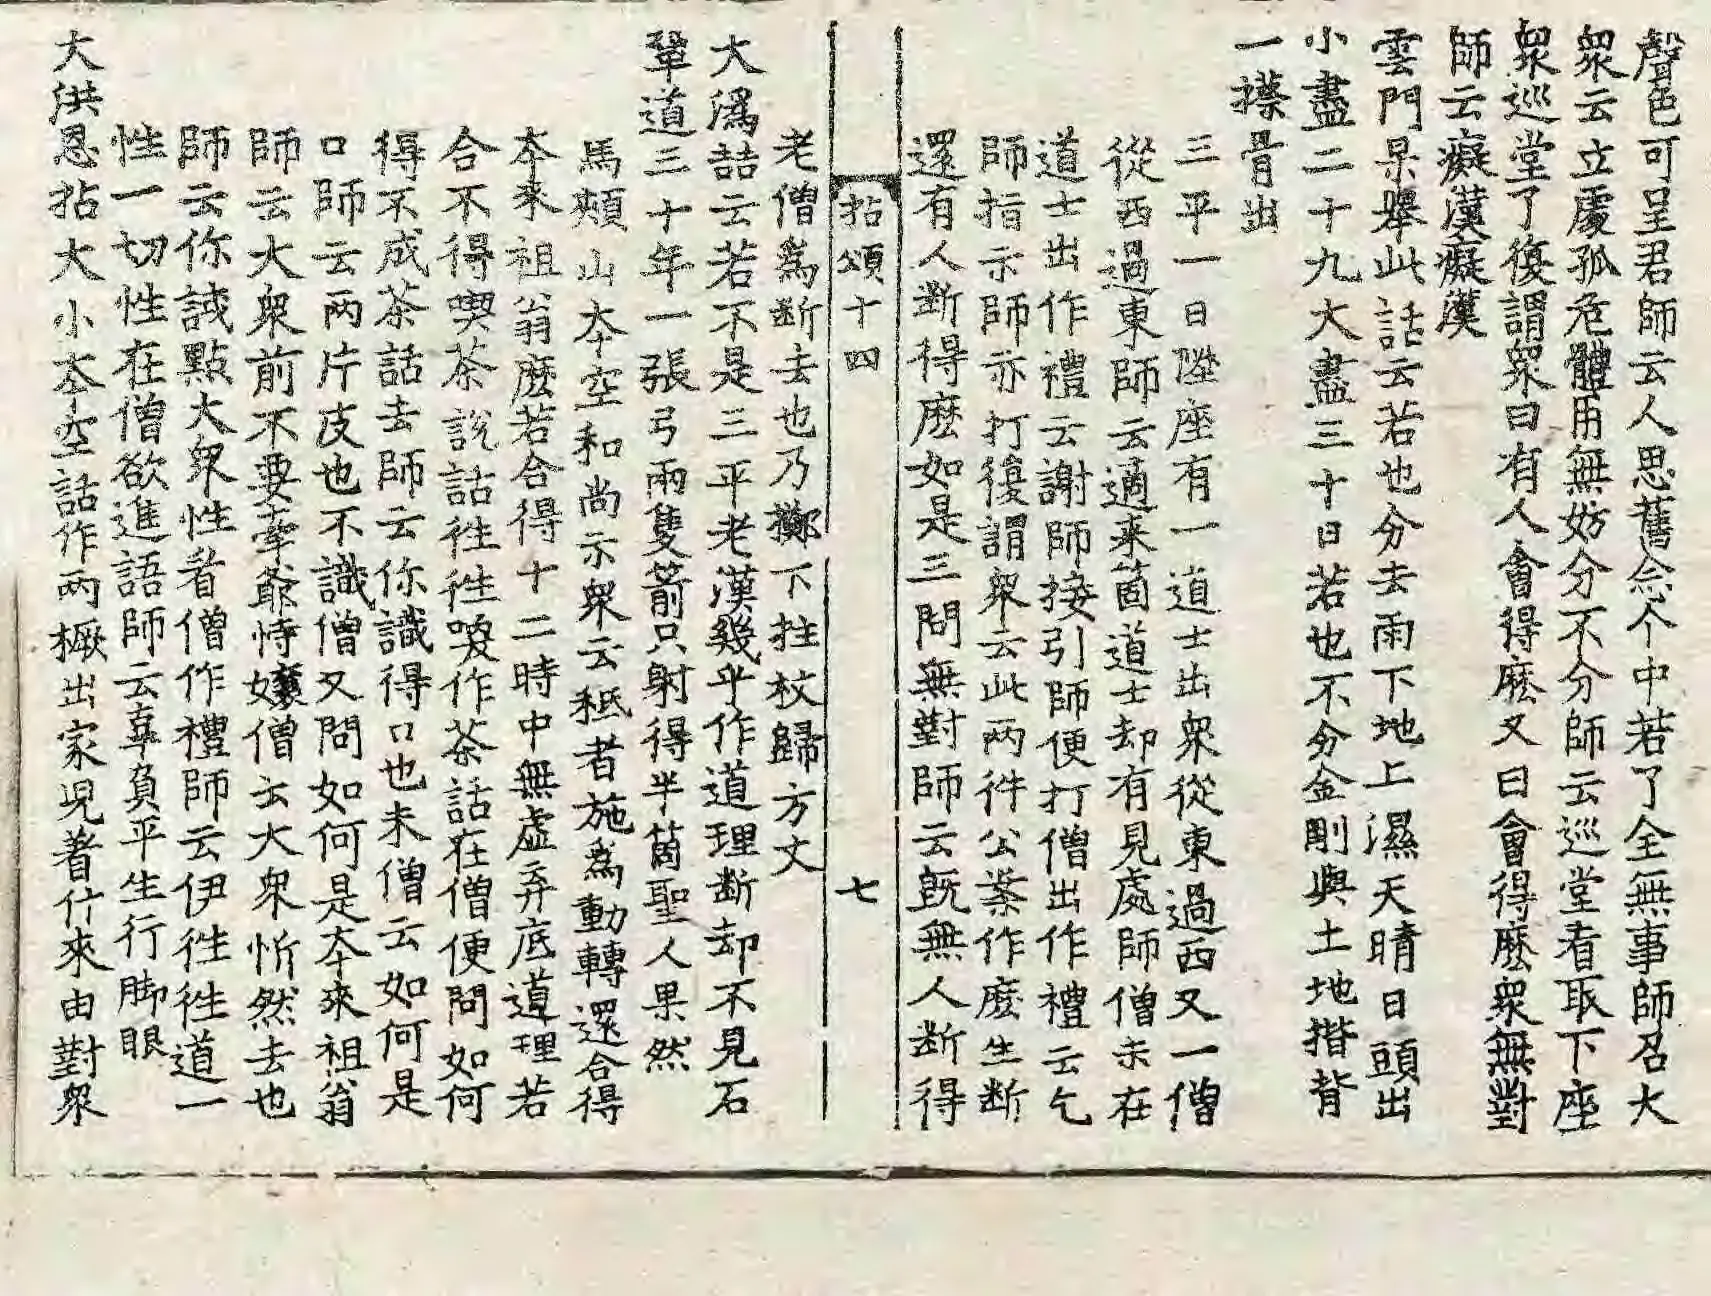 聲色可呈君師云人思舊念个中若了全無事師召大
衆云立處孤危體用無妨分不分師云巡堂看取下座
衆巡堂了復謂衆曰有人會得麽又曰會得麽衆無對
師云癡漢癡漢
雲門杲舉此話云若也分去雨下地上濕天晴日頭出
小盡二十九大盡三十日若也不分金剛與土地揩背
一擦骨出
三平一日陞座有一道士出衆從東過西又一僧
從西過東師云適来箇道士却有見處師僧未在
道士出作禮云謝師接引師便打僧出作禮云乞
師指示師亦打復謂衆云此兩件公案作麽生斷
還有人斷得麽如是三問無對師云旣無人斷得
拈頌十四 七
老僧爲斷去也乃擲下拄杖歸方丈
大潙喆云若不是三平老漢幾乎作道理斷却不見石
鞏道三十年一張弓兩隻箭只射得半箇聖人果然
馬頰山夲空和尚示衆云秪者施爲動轉還合得
夲来祖翁麽若合得十二時中無虛弃底道理若
合不得喫茶說話徃徃喚作茶話在僧便問如何
得不成茶話去師云你識得口也未僧云如何是
口師云兩片皮也不識僧又問如何是夲來祖翁
師云大衆前不要牽爺恃孃僧云大衆忻然去也
師云你試點大衆性看僧作禮師云伊徃徃道一
性一切性在僧欲進語師云辜負平生行脚眼
大洪恩拈大小夲空話作兩橛出家児着什來由對衆